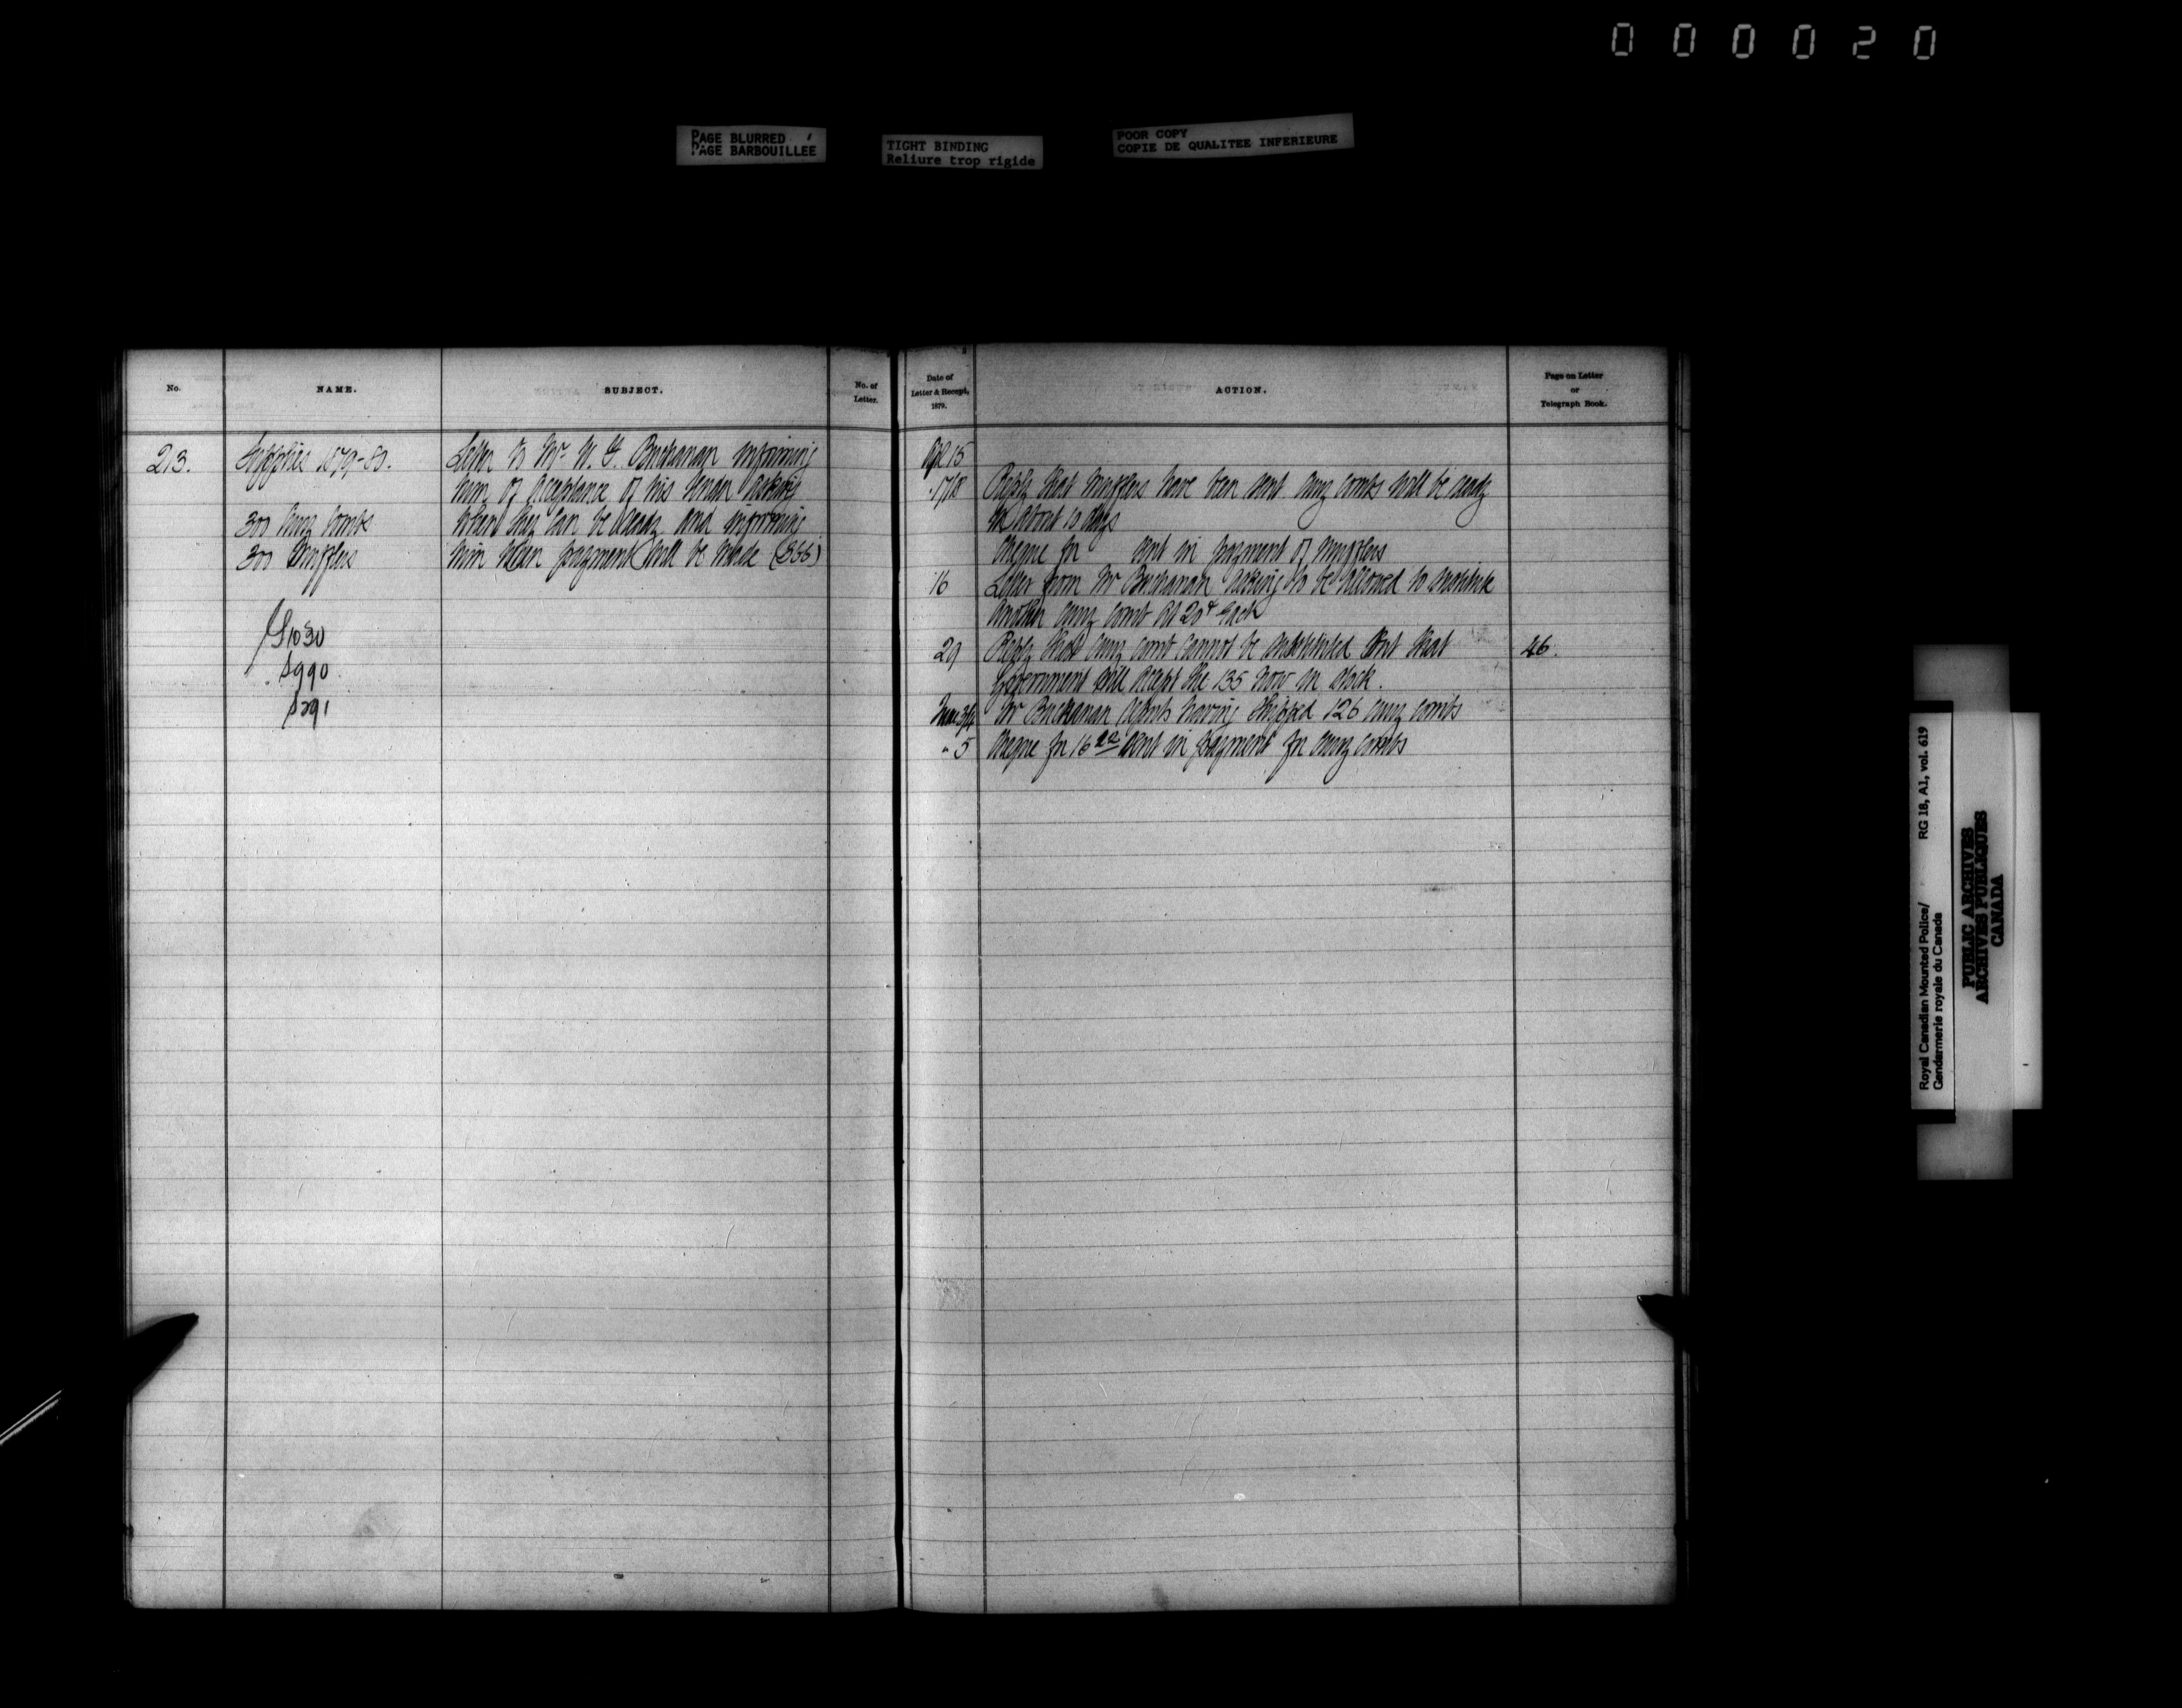 000020
PAGE BLURRED
PAGE BARBOUILLÉE
TIGHT BINDING
Reliure trop rigide
POOR COPY
COPIE DE QUALITEE INFERIEURE
No.
NAME.
SUBJECT.
No. of
Letter.
213.
Supplies 1879-80.
300 Curry Combs
300 Mufflers
S1030
S990
S291
Letter to Mr. W. Y. Buchanan informing
him of acceptance of his tender asking
when they can be ready and informing
him when payment will be made (S55)
Date of
Letter & Receipt,
1879.
ACTION.
Page on Letter
or
Telegraph Book.
Apl 15
17/18 Reply that mufflers have been sent curry combs will be ready
in about 10 days
Cheque for sent in payment of mufflers
16 Letter from Mr Buchanan asking to be allowed to substitute
another curry comb at 20 each
29 Reply that curry comb cannot be substituted but that 46.
Government will accept the 135 now in stock.
June Mr Buchanan reports having shipped 126 curry combs
" 5 Cheque for 16 sent in payment for curry combs
Royal Canadian Mounted Police/ RG 18, A1, vol. 619
Gendarmerie royale du Canada
PUBLIC ARCHIVES
ARCHIVES PUBLIQUES
CANADA